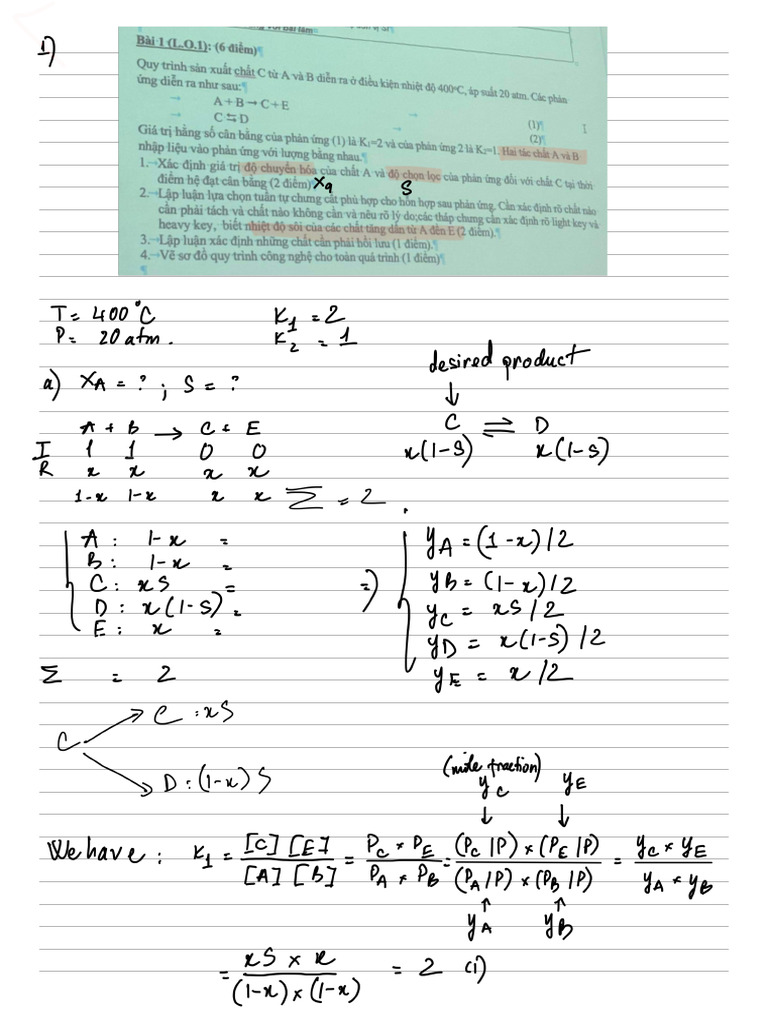 1)
Bài 1 (L.O.1): (6 điểm)
Quy trình sản xuất chất C từ A và B diễn ra ở điều kiện nhiệt độ 400°C, áp suất 20 atm. Các phản
ứng diễn ra như sau:
A + B → C + E (1)
C ⇆ D (2)
Giá trị hằng số cân bằng của phản ứng (1) là K₁=2 và của phản ứng 2 là K₂=1. Hai tác chất A và B
nhập liệu vào phản ứng với lượng bằng nhau.
1. Xác định giá trị độ chuyển hóa của chất A và độ chọn lọc của phản ứng đối với chất C tại thời
điểm hệ đạt cân bằng (2 điểm) Xa S
2. Lập luận lựa chọn tuần tự chưng cất phù hợp cho hỗn hợp sau phản ứng. Cần xác định rõ chất nào
cần phải tách và chất nào không cần và nêu rõ lý do;các tháp chưng cần xác định rõ light key và
heavy key, biết nhiệt độ sôi của các chất tăng dần từ A đến E (2 điểm).
3. Lập luận xác định những chất cần phải hồi lưu (1 điểm).
4. Vẽ sơ đồ quy trình công nghệ cho toàn quá trình (1 điểm)
T= 400°C K₁ = 2
P= 20 atm. K₂ = 1
desired product
a) XA = ? ; S = ?
↓
A + B → C + E C ⇌ D
I 1 1 0 0 x(1-S) x(1-S)
R x x x x
1-x 1-x x x Σ = 2.
A : 1-x = yA = (1-x)/2
B : 1-x = yB = (1-x)/2
C : xS = => yC = xS/2
D : x(1-S) = yD = x(1-S)/2
E : x = yE = x/2
Σ = 2
C : xS
C
D : (1-x) S
(mole fraction)
yC yE
↓ ↓
We have : K₁ = [C][E] / [A][B] = PC × PE / PA × PB = (PC/P) × (PE/P) / (PA/P) × (PB/P) = yC × yE / yA × yB
↑ ↑
yA yB
= xS × x / (1-x) × (1-x) = 2 (1)